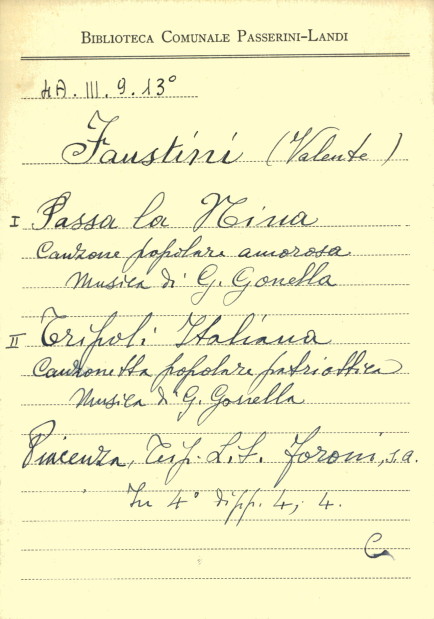 BIBLIOTECA COMUNALE PASSERINI-LANDI
4A. III. 9. 13°
Faustini (Valente)
I Passa la Nina
Canzone popolare amorosa
Musica di G. Gonella
II Tripoli Italiana
Canzonetta popolare patriottica
Musica di G. Gonella
Piacenza, Tip. L.S. Foroni, s.a.
In 4° di pp. 4, 4.
C